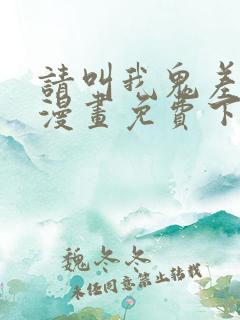 請叫我鬼差
漫畫免費下
魏冬冬
未经同意禁止转载